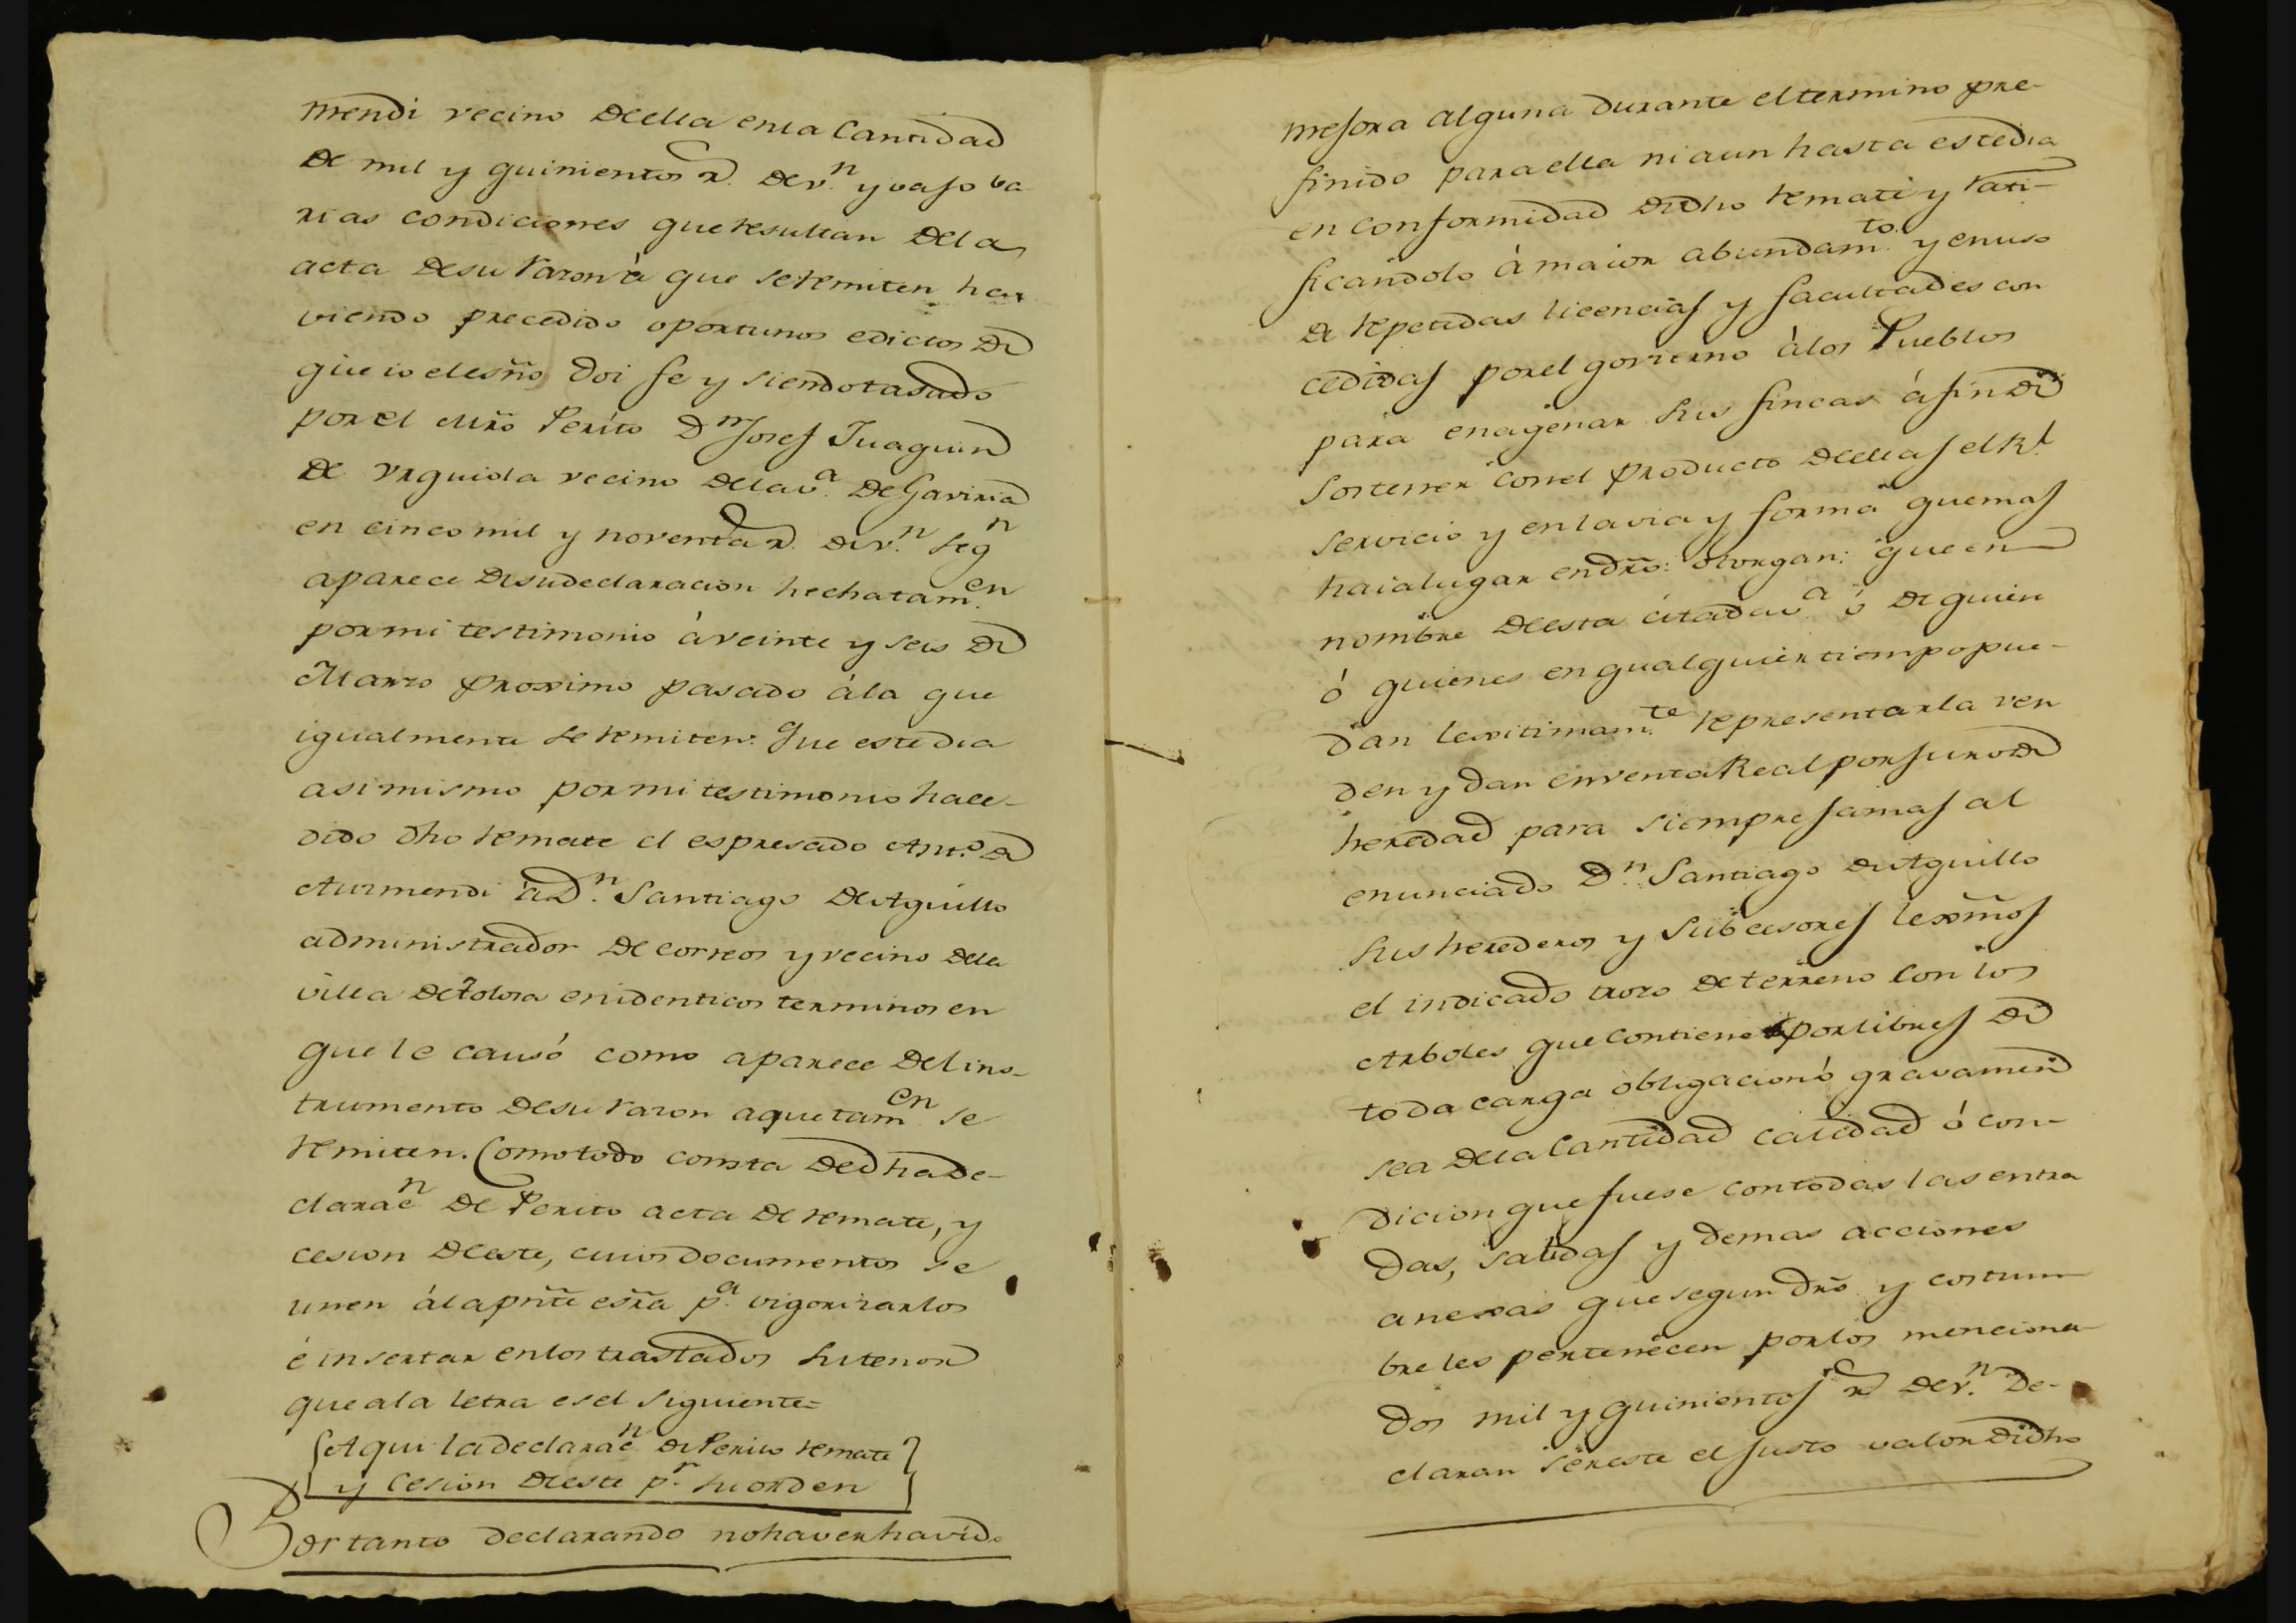 mendi vecino de ella en la Cantidad
de mil y quinientos r.^s de v.^n y vajo va-
rias condiciones que resultan de la
acta de su razon à que se remiten ha-
viendo precedido oportunos edictos de
que io el esño doi fe y siendo tasado
por el Mrõ Perito D.^n Josef Juaquin
de Urquiola vecino de la v.^a de Gaviria
en cinco mil y noventa r.^s de v.^n seg^n
aparece de su declaracion hecha tam.^en
por mi testimonio à veinte y seis de
Marzo proximo pasado à la que
igualmente se remiten: Que este dia
asimismo por mi testimonio ha ce-
dido dho remate el espresado Ant.^o de
Aurmendi à D.^n Santiago de Aguillo
administrador de correos y vecino de la
villa de Tolosa en identicos terminos en
que le causó como aparece del ins-
trumento de su razon a que tam^en se
remiten. Como todo consta de dha de-
clarac^n de Perito acta de remate, y
cesion de este, cuios documentos se
unen à la pñte esrã p.^a vigorizarlos
é insertar en los traslados su tenor
que a la letra es el siguiente=
Aqui la declarac^n de Perito remate
y Cesion de este p.^r su orden
Por tanto declarando no haver havido
mejora alguna durante el termino pre-
finido para ella ni aun hasta este dia
en conformidad de dho remate y rati-
ficandolo à maior abundam.^to y en uso
de repetidas licencias y facultades con
cedidas por el govierno à los Pueblos
para enagenar sus fincas à fin de
sostener con el producto de ellas el R.^l
servicio y en la via y forma que mas
haia lugar en drõ: otorgan: que en
nombre de esta citada v.^a ó de quien
ó quienes en qualquier tiempo pue-
dan lexitimam.^te representarla ven
den y dan en venta Real por juro de
heredad para siempre jamas al
enunciado D.^n Santiago de Aguillo
sus herederos y subcesores lexmõs
el indicado trozo de terreno con los
Arboles que contiene por libres de
toda carga obligacion ó gravamen
sea de la Cantidad calidad ó con-
dicion que fuese con todas las entra
das, salidas y demas acciones
anexas que segun drõ y costum
bre les pertenecen por los menciona
dos mil y quinientos r.^s de v.^n De-
claran ser este el justo valor de dho